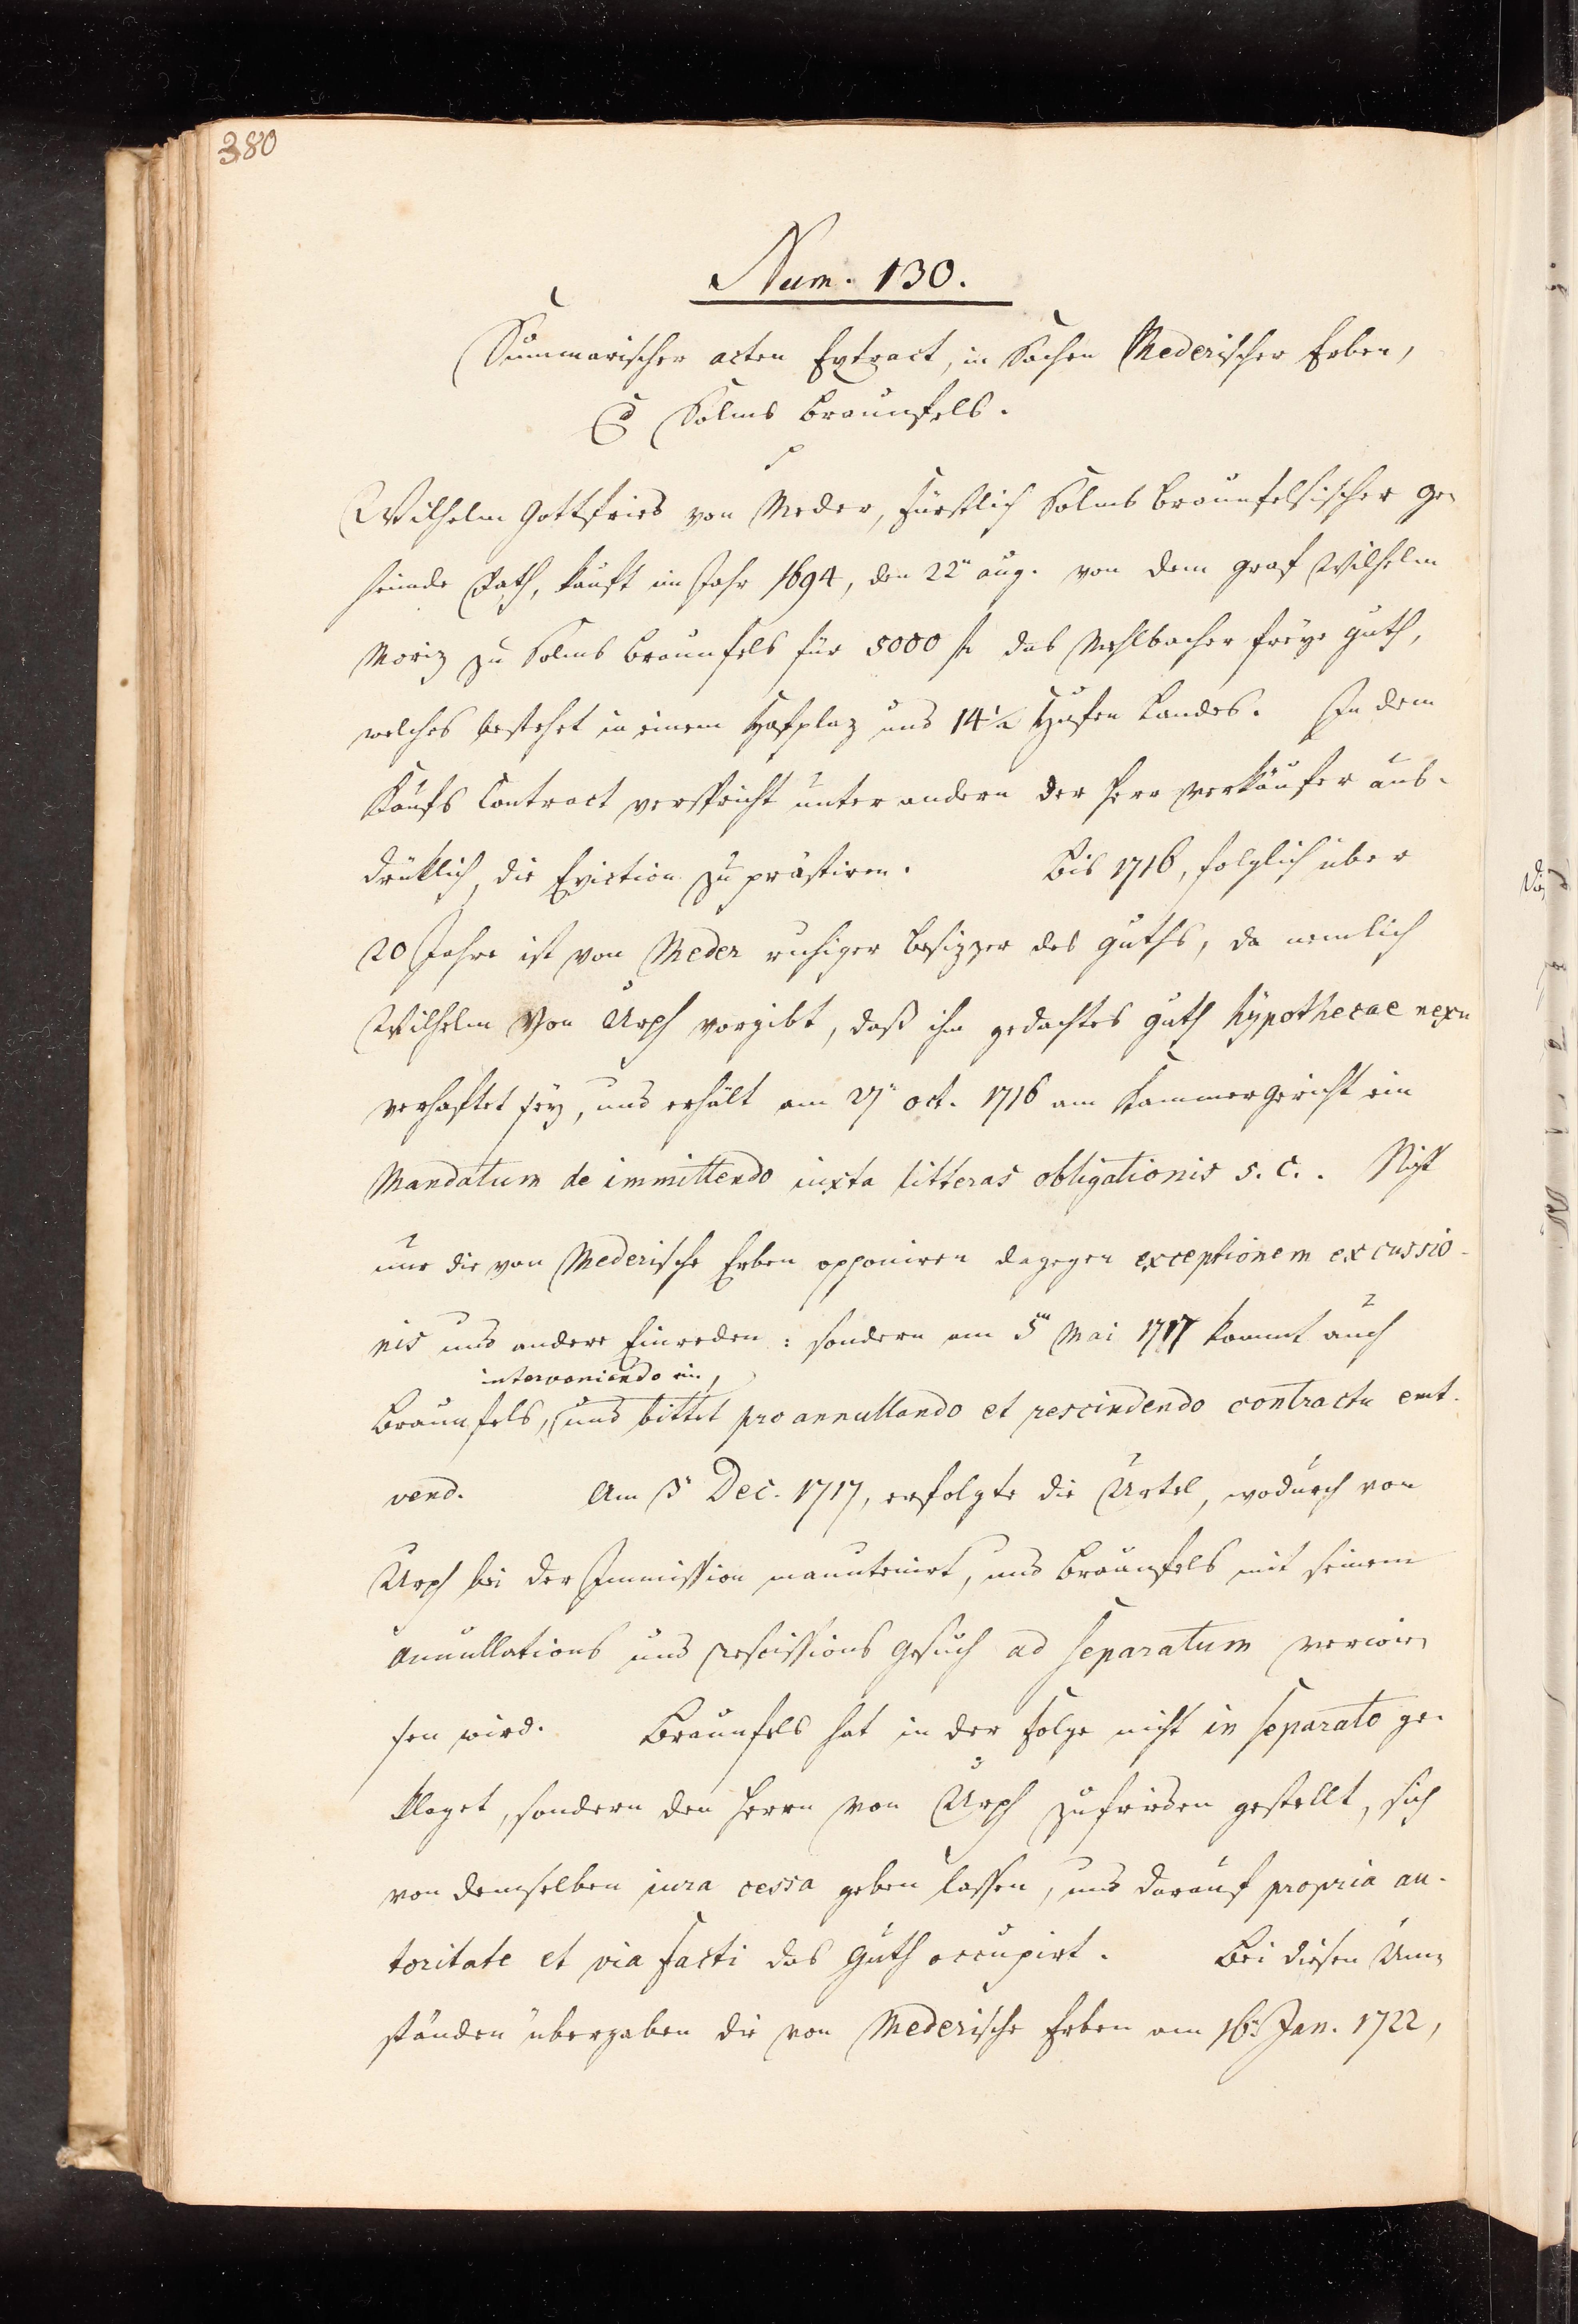 380
Num. 130.
Summarischer acten Extract, in Sachen Mederischer Erben,
C Solms Braunfels.
Wilhelm Gottfried von Meder, Fürstlich Solms Braunfelsischer ge-
heimde Rath, kauft im Jahr 1694, den 22n aug. von dem Graf Wilhelm
Moriz zu Solms Braunfels für 5000 fl das Mehlbacher freye Guth,
welches bestehet in einem Hofplaz und 14½ Hufen Landes. In dem
Kaufs Contract verspricht unter andern der Herr Verkäufer aus-
drüklich, die Eviction zu prästiren. Bis 1716, folglich über
20 Jahre ist von Meder ruhiger Besizzer des Guths, da nemlich
Wilhelm von Urph vorgibt, daß ihm gedachtes Guth hypothecae nexu
verhaftet sey, und erhält am 27n oct. 1716 am Kammergericht ein
Mandatum de immittendo iuxta litteras obligationis s. c.. Nicht
nur die von Mederische Erben opponiren dagegen exceptionem excussio-
nis und andere Einreden: sondern am 5n Mai 1717 kommt auch
interveniendo ein,
Braunfels, und bittet pro annullando et rescindendo contractu emt.
vend. Am 13n Dec. 1717, erfolgte die Urtel, wodurch von
Urph bei der Immission manutenirt, und Braunfels mit seinem
Annullations und Rescissions Gesuch ad separatum verwie-
sen wird. Braunfels hat in der Folge nicht in separato ge-
klaget, sondern den Herrn von Urph zufrieden gestellt, sich
von demselben iura cessa geben lassen, und darauf propria au-
toritate et via facti das Guth occupirt. Bei diesen Um-
ständen übergaben die von Mederische Erben am 16n Jan. 1722,